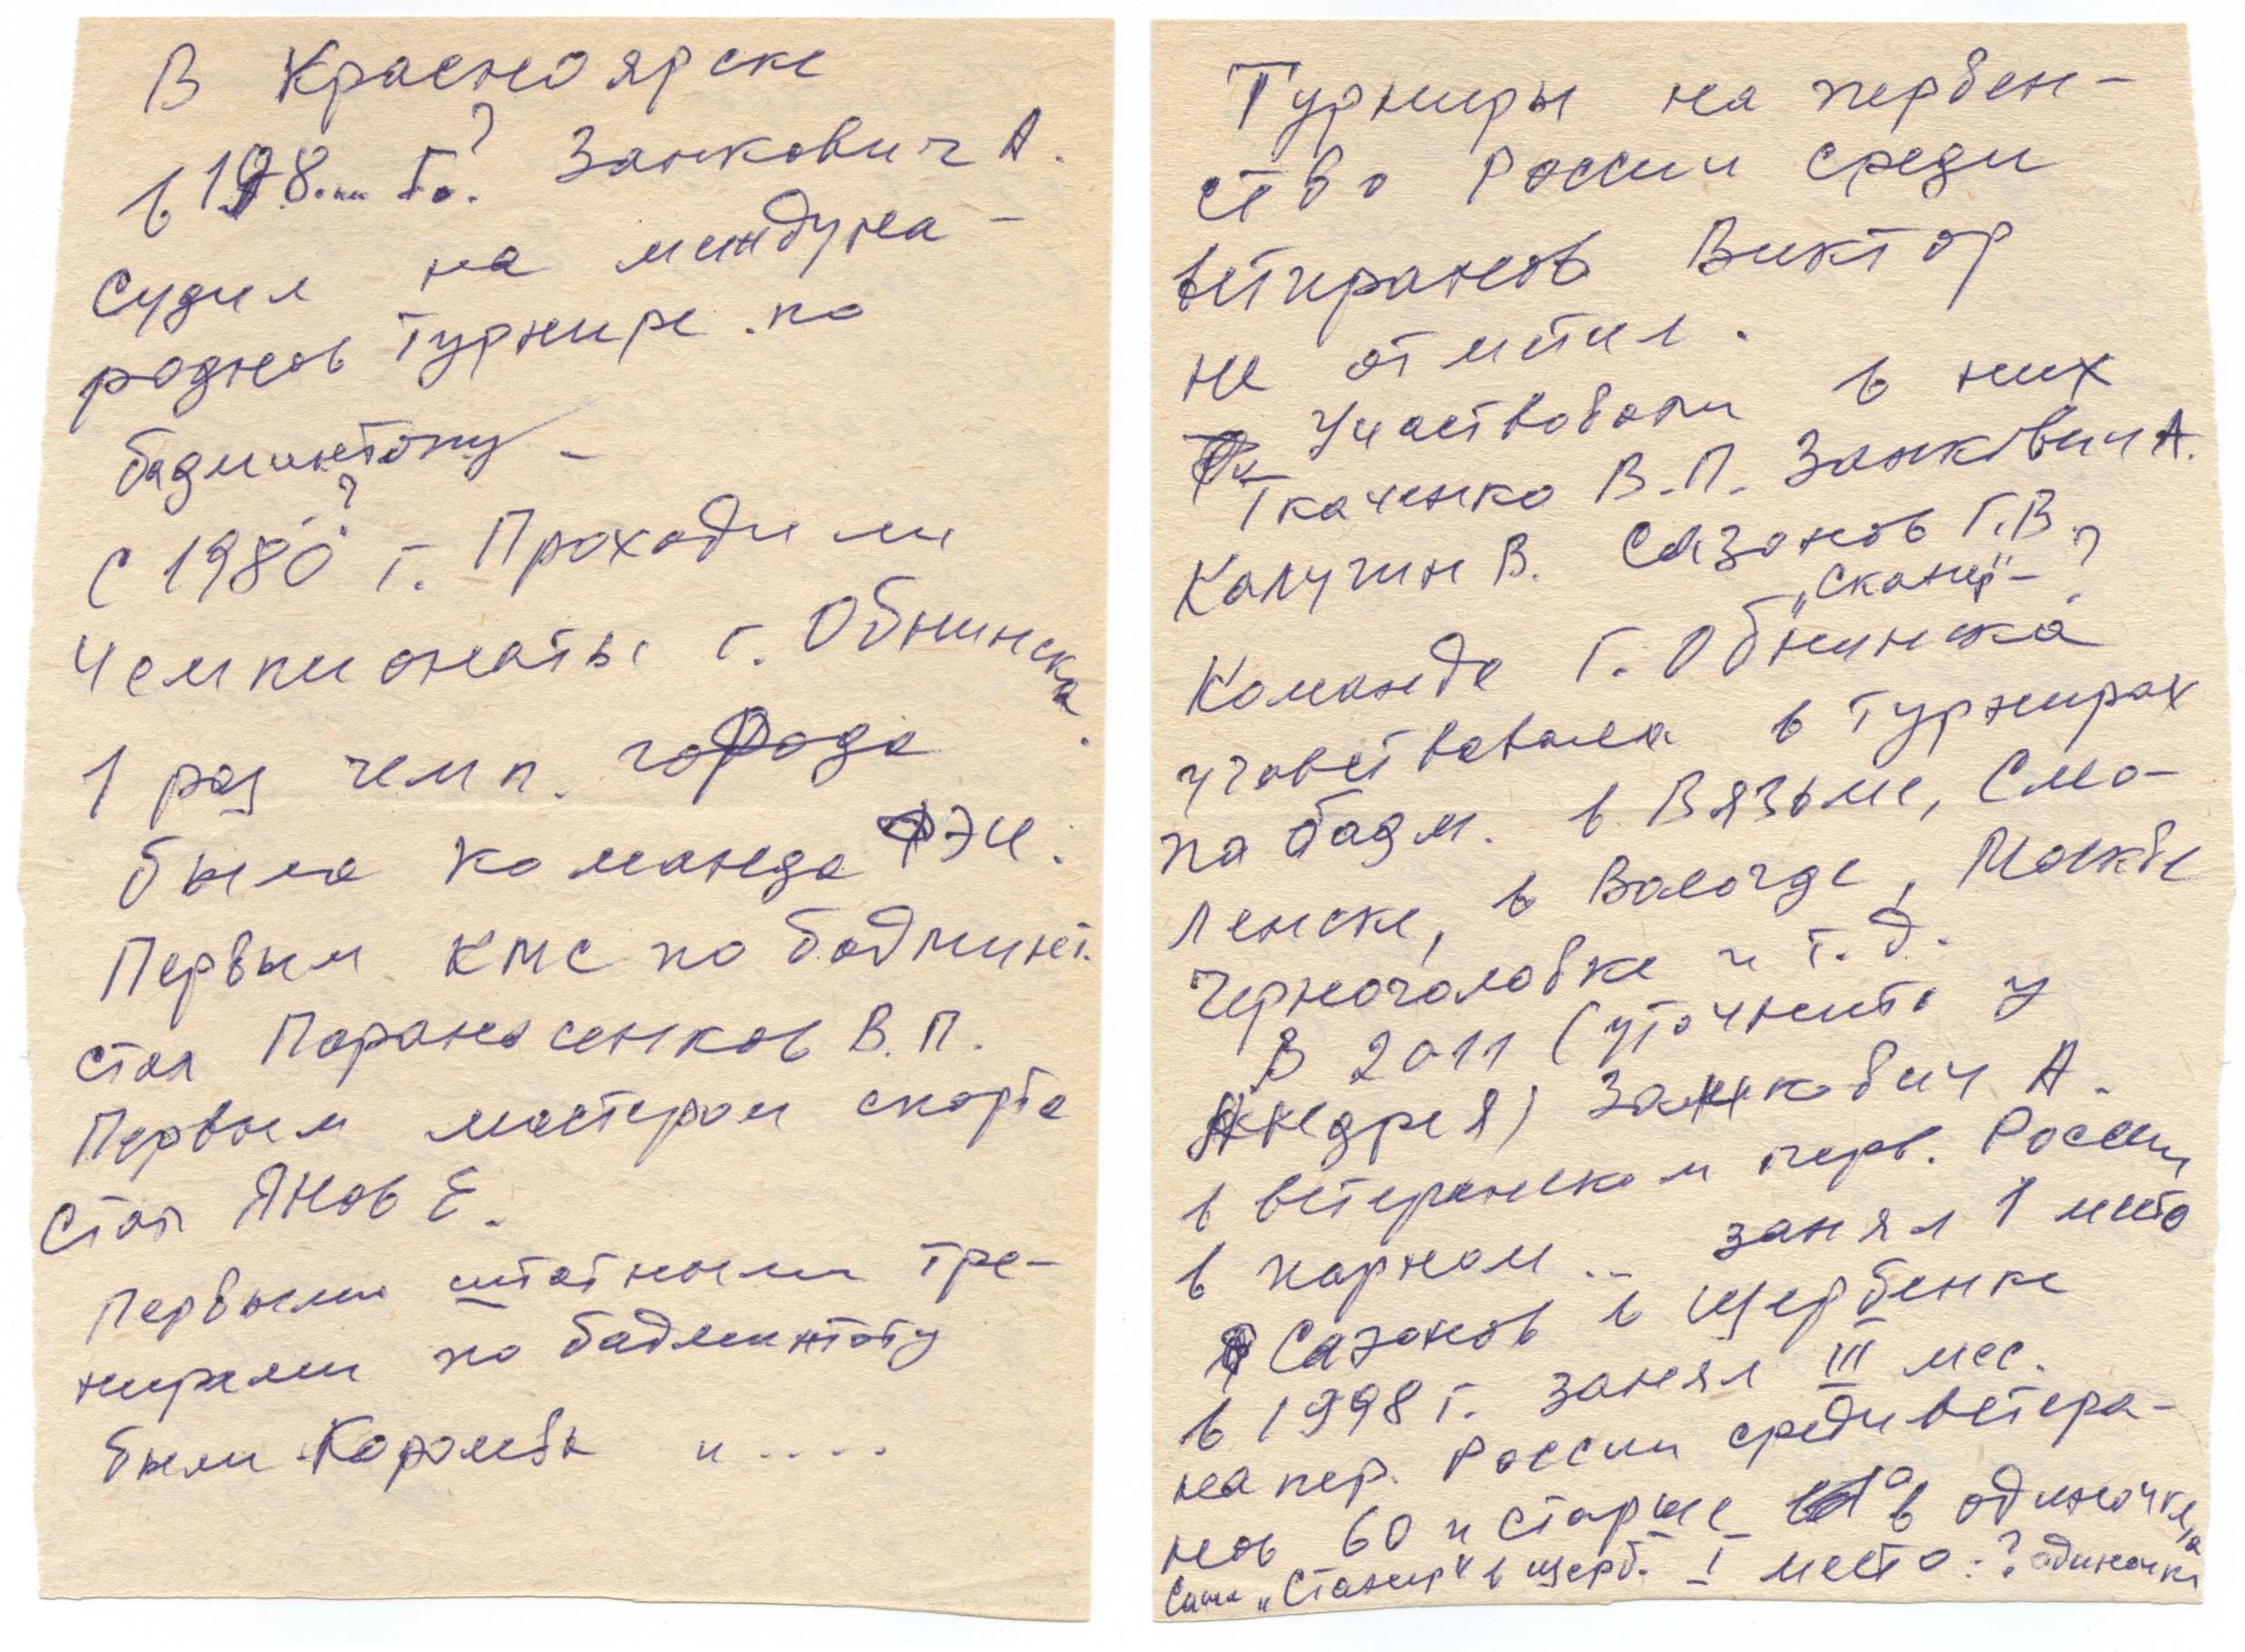 В Красноярске
в 198.... г.? Занкович А.
судил на междуна-
родном турнире по
бадминтону -
С 1980? г. Проходили
чемпионаты г. Обнинска.
1 раз чемп. города
была команда ФЭИ.
Первым КМС по бадминт.
стал Параносенков В.П.
Первым мастером спорта
стал Янов Е.
Первыми штатными тре-
нирами по бадминтону
были Королевы и ....
Турниры на первен-
ство России среди
ветеранов Виктор
не отметил.
Участвовали в них
Ткаченко В.П. Занкович А.
Калугин В. Сазонов Г.В.
„Сканер"- ?
Команда г. Обнинска
участвовала в турнирах
по бадм. в Вязьме, Смо-
ленске, в Вологде, Москве
Черноголовке и т.д.
В 2011 (уточнить у
Андрея) Занкович А.
в ветеранском перв. России
в парном .. занял 1 место
Сазонов в Щербенке
в 1998 г. занял III мес.
на пер. России среди ветера-
нов 60 и старше в одиночке
Саша в Щерб. I место ? одиночка